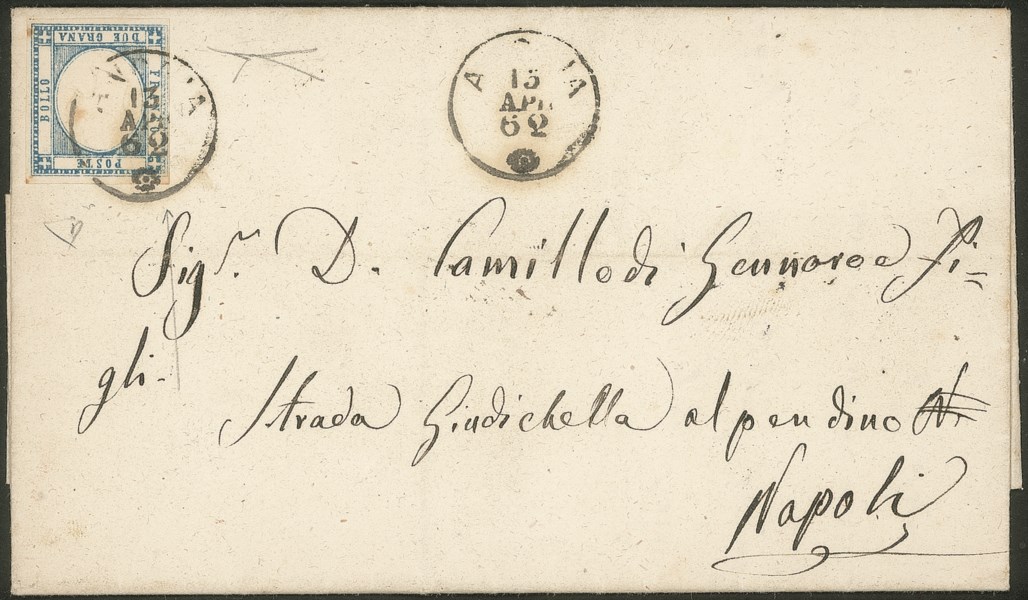 DUE GRANA
BOLLO
POSTE
13
AP
62
A IA
13
APR
62
Sig.r D. Camillo di Gennaro e Fi=
gli.
Strada Giudichella al pendino
Napoli